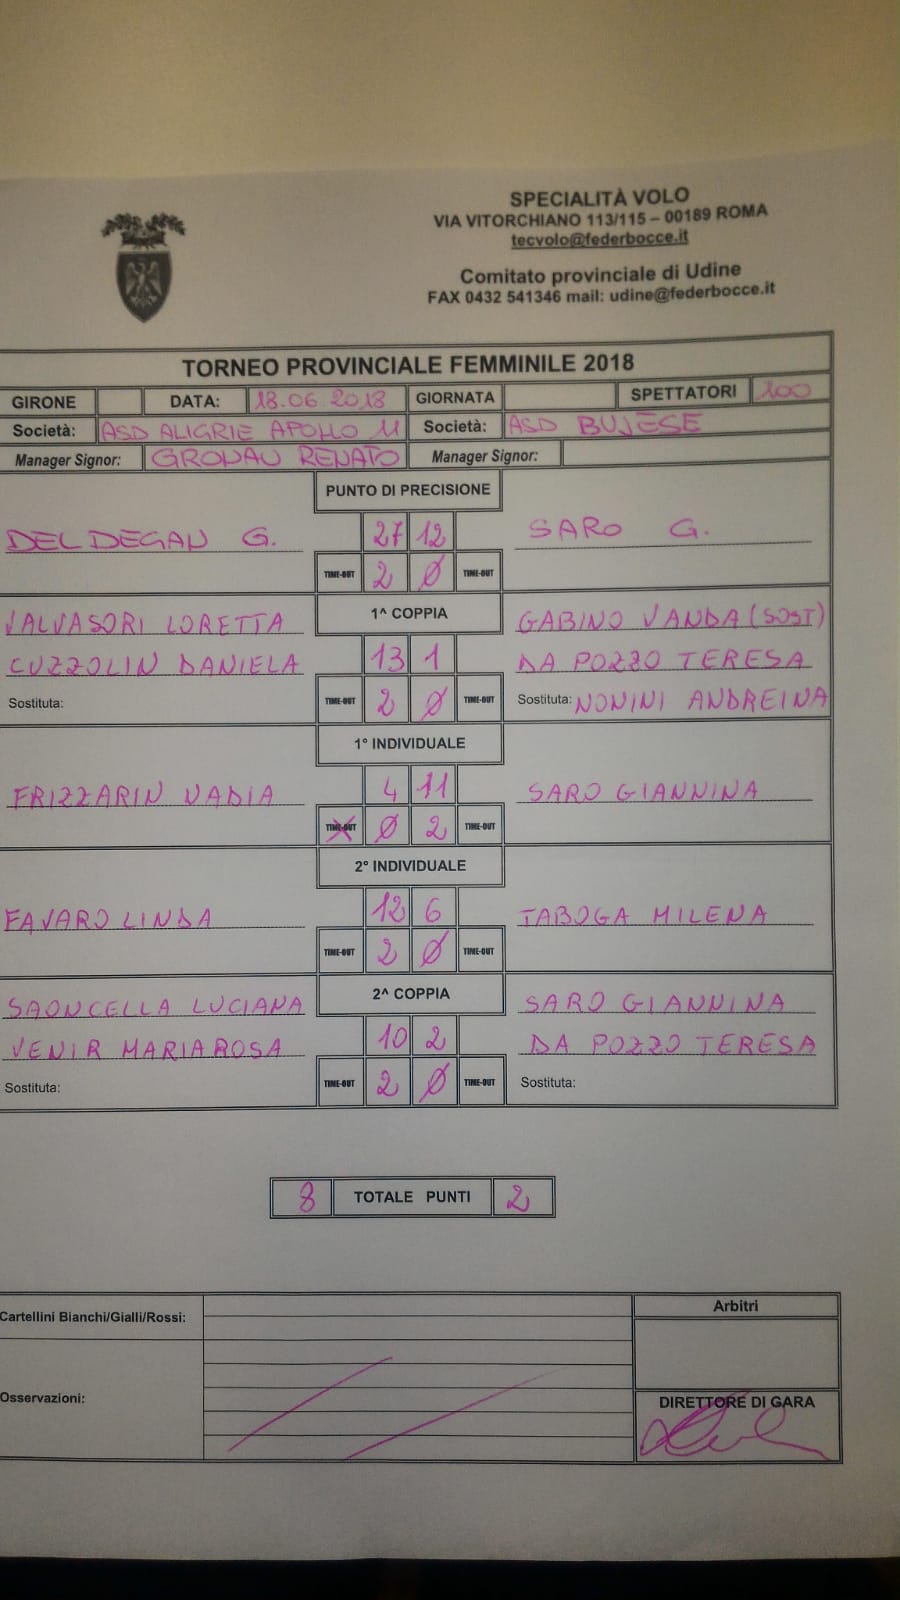 SPECIALITÀ VOLO
VIA VITORCHIANO 113/115 – 00189 ROMA
tecvolo@federbocce.it
Comitato provinciale di Udine
FAX 0432 541346 mail: udine@federbocce.it
TORNEO PROVINCIALE FEMMINILE 2018
GIRONE DATA: 18.06.2018 GIORNATA SPETTATORI 100
Società: ASD ALIGRIE APOLLO 11 Società: ASD BUJESE
Manager Signor: GRONAU RENATO Manager Signor:
PUNTO DI PRECISIONE
DEL DEGAN G. 27 12 SARO G.
TIME-OUT 2 Ø TIME-OUT
VALVASORI LORETTA 1^ COPPIA GABINO VANDA (SOST)
CUZZOLIN DANIELA 13 1 DA POZZO TERESA
Sostituta: TIME-OUT 2 Ø TIME-OUT Sostituta: NONINI ANDREINA
1° INDIVIDUALE
FRIZZARIN NADIA 4 11 SARO GIANNINA
TIME-OUT Ø 2 TIME-OUT
2° INDIVIDUALE
FAVARO LINDA 12 6 TABOGA MILENA
TIME-OUT 2 Ø TIME-OUT
SAONCELLA LUCIANA 2^ COPPIA SARO GIANNINA
VENIR MARIAROSA 10 2 DA POZZO TERESA
Sostituta: TIME-OUT 2 Ø TIME-OUT Sostituta:
8 TOTALE PUNTI 2
Cartellini Bianchi/Gialli/Rossi: Arbitri
Osservazioni: DIRETTORE DI GARA